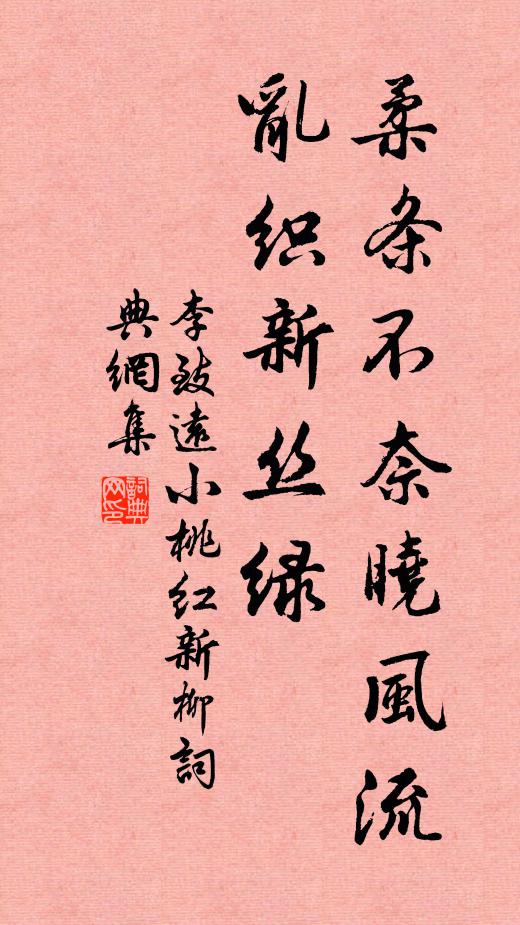 柔条不奈曉風流
亂织新丝绿
李致遠小桃红新柳詞
典網集
詞典
网印